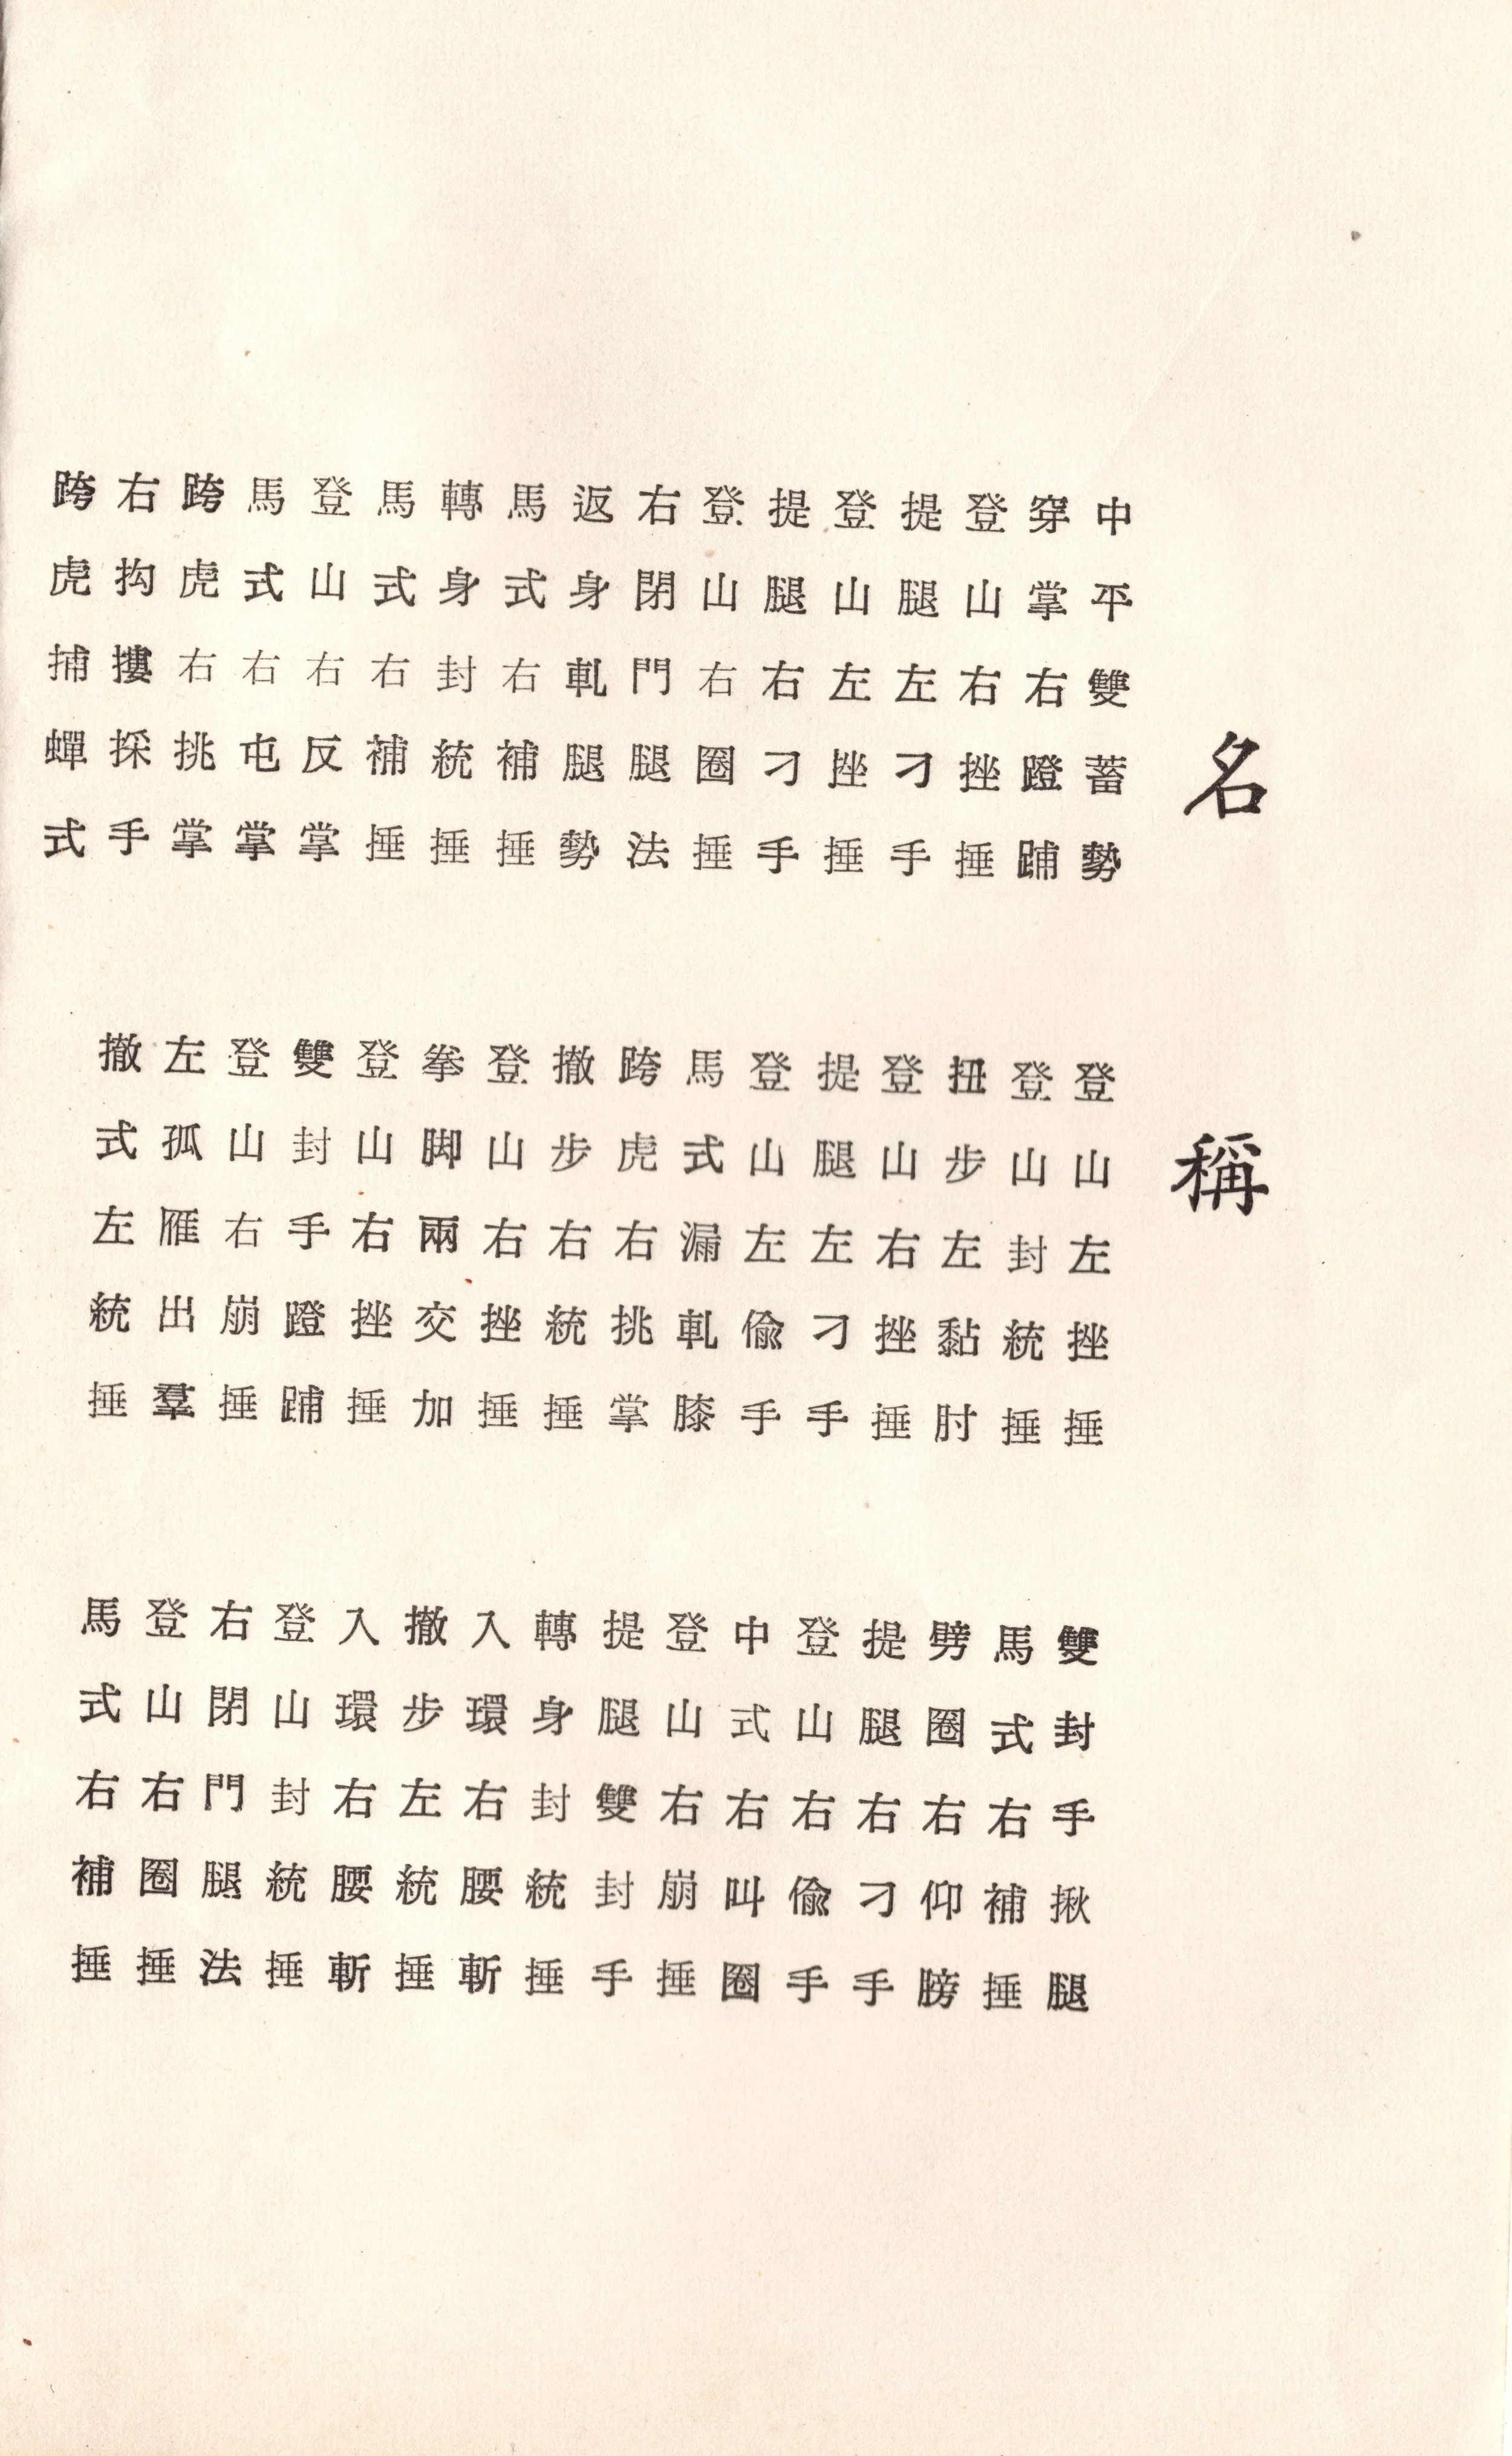 名稱
中平雙蓄勢　登山左挫捶　雙封手揪腿
穿掌右蹬䠙　登山封統捶　馬式右補捶
登山右挫捶　扭步左黏肘　劈圈右仰膀
提腿左刁手　登山右挫捶　提腿右刁手
登山左挫捶　提腿左刁手　登山右偷手
提腿右刁手　登山左偷手　中式右叫圈
登山右圈捶　馬式漏軋膝　登山右崩捶
右閉門腿法　跨虎右挑掌　提腿雙封手
返身軋腿勢　撤步右統捶　轉身封統捶
馬式右補捶　登山右挫捶　入環右腰斬
轉身封統捶　拳脚兩交加　撤步左統捶
馬式右補捶　登山右挫捶　入環右腰斬
登山右反掌　雙封手蹬䠙　登山封統捶
馬式右屯掌　登山右崩捶　右閉門腿法
跨虎右挑掌　左孤雁出羣　登山右圈捶
右抅摟採手　撤式左統捶　馬式右補捶
跨虎捕蟬式